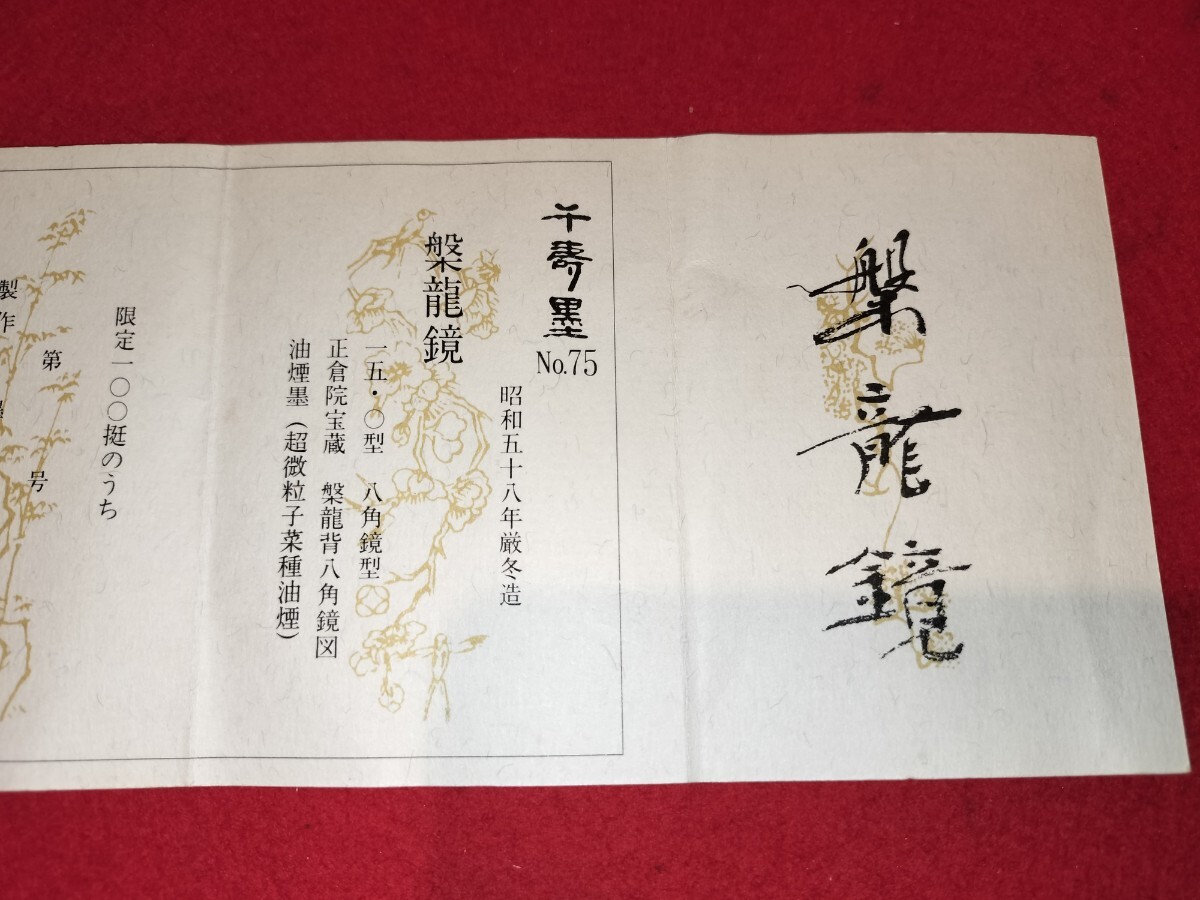 槃龍鏡
千寿墨
No.75
昭和五十八年厳冬造
槃龍鏡
一五・〇型 八角鏡型
正倉院宝蔵 槃龍背八角鏡図
油煙墨(超微粒子菜種油煙)
限定一〇〇挺のうち
第 号
製作